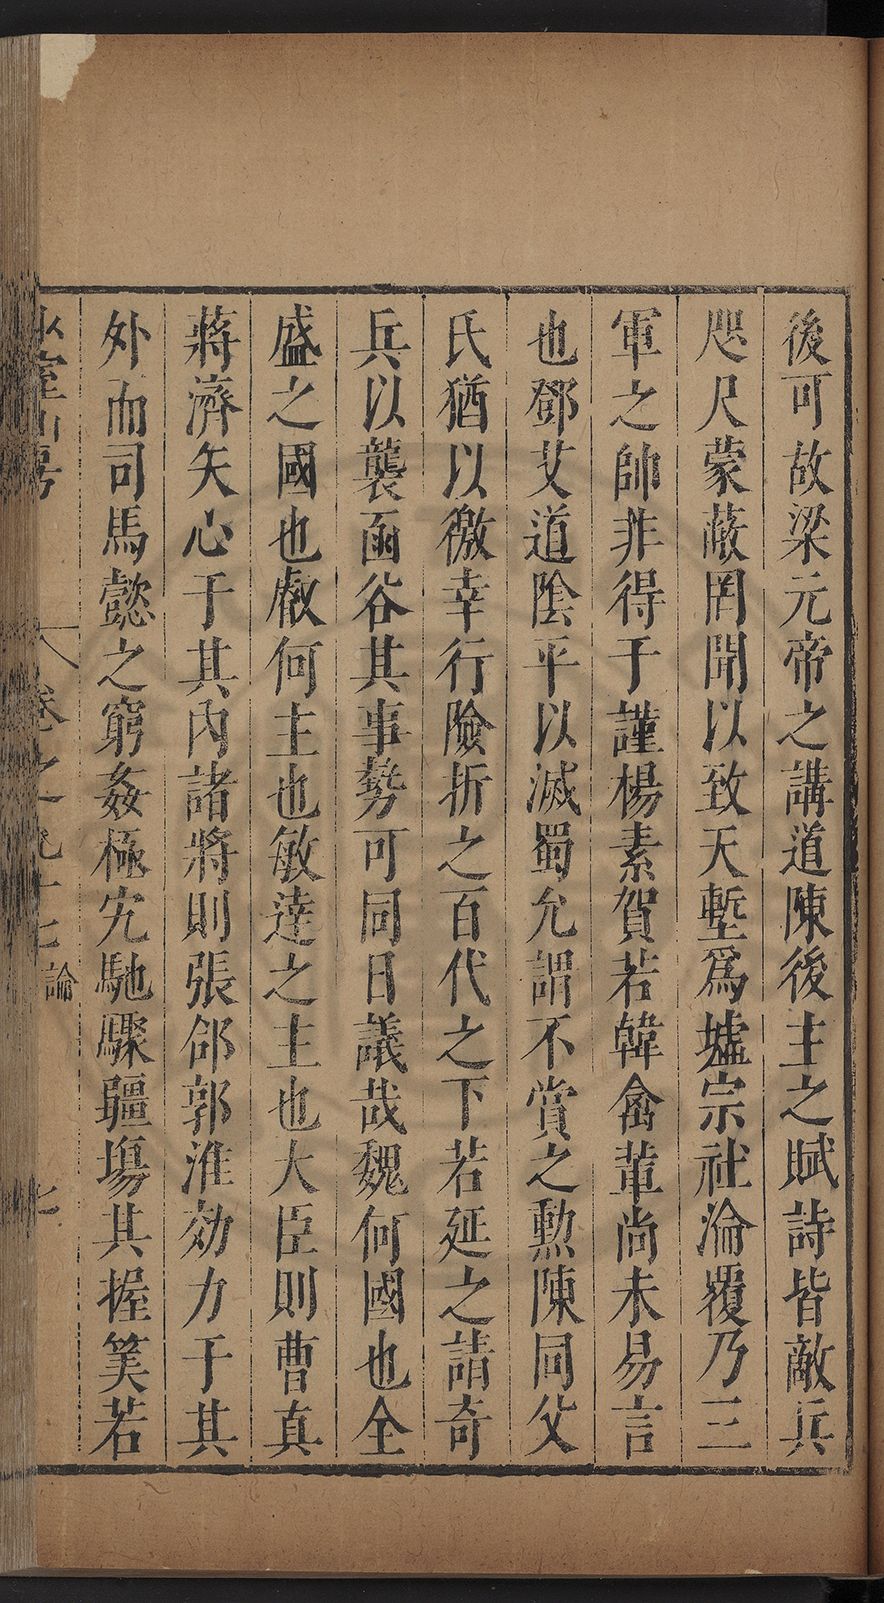 後可故梁元帝之講道陳後主之賦詩皆敵兵
咫尺蒙蔽罔聞以致天塹爲墟宗社淪覆乃三
軍之帥非得于謹楊素賀若韓禽軰尚未易言
也鄧艾道隂平以滅蜀允謂不賞之勲陳同父
氏猶以徼幸行險折之百代之下若延之請奇
兵以襲函谷其事勢可同日議哉魏何國也全
盛之國也叡何主也敏達之主也大臣則曹真
蔣濟矢心于其內諸將則張郃郭淮効力于其
外而司馬懿之窮姦極宄馳驟疆塲其握筭若
少室山房 卷之九十七 論 七